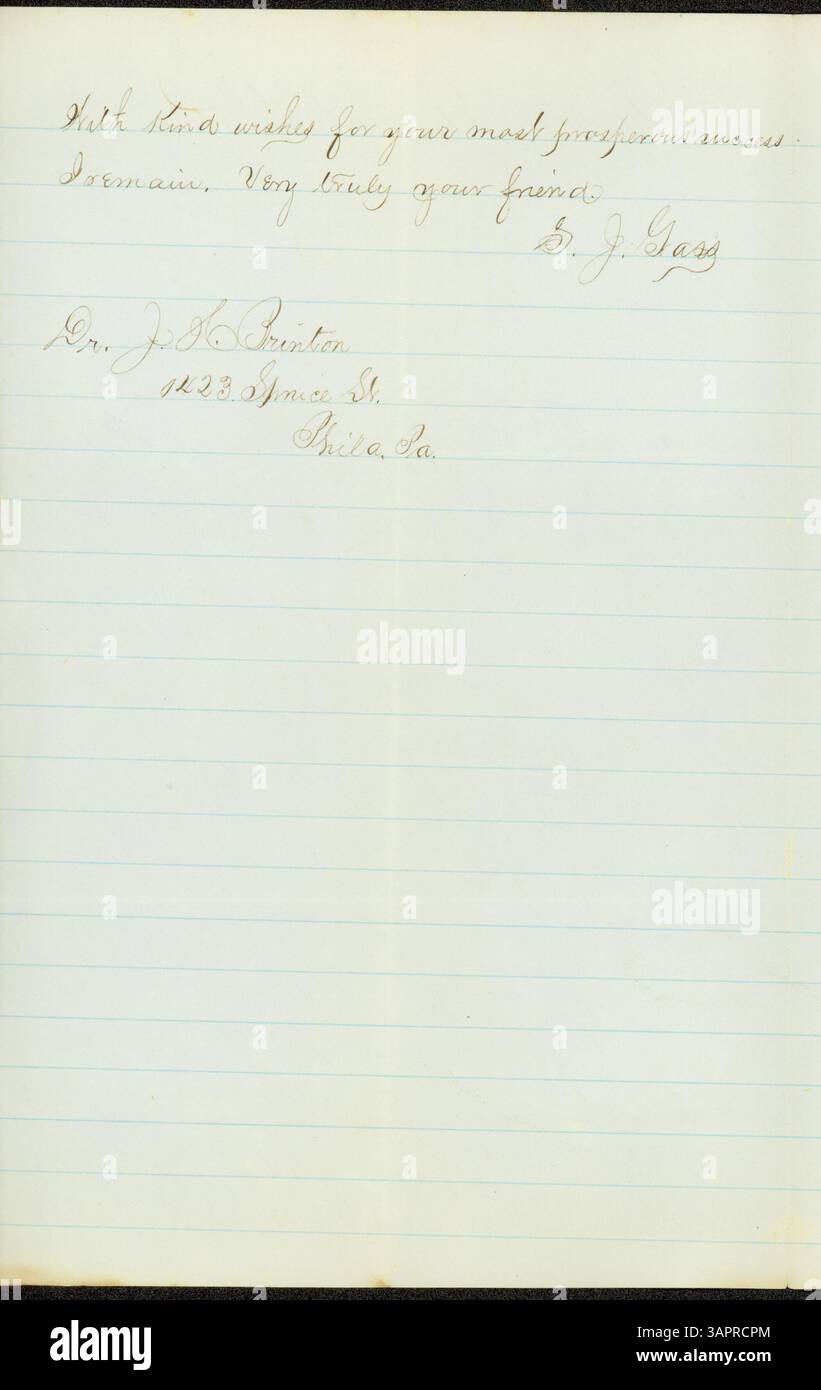 With kind wishes for your most prosperous success
I remain. Very truly your friend.
S. J. Gass
Dr. J. H. Brinton
1423. Spruce St.
Phila. Pa.
alamy
alamy
alamy
alamy
Image ID: 3APRCPM
www.alamy.com